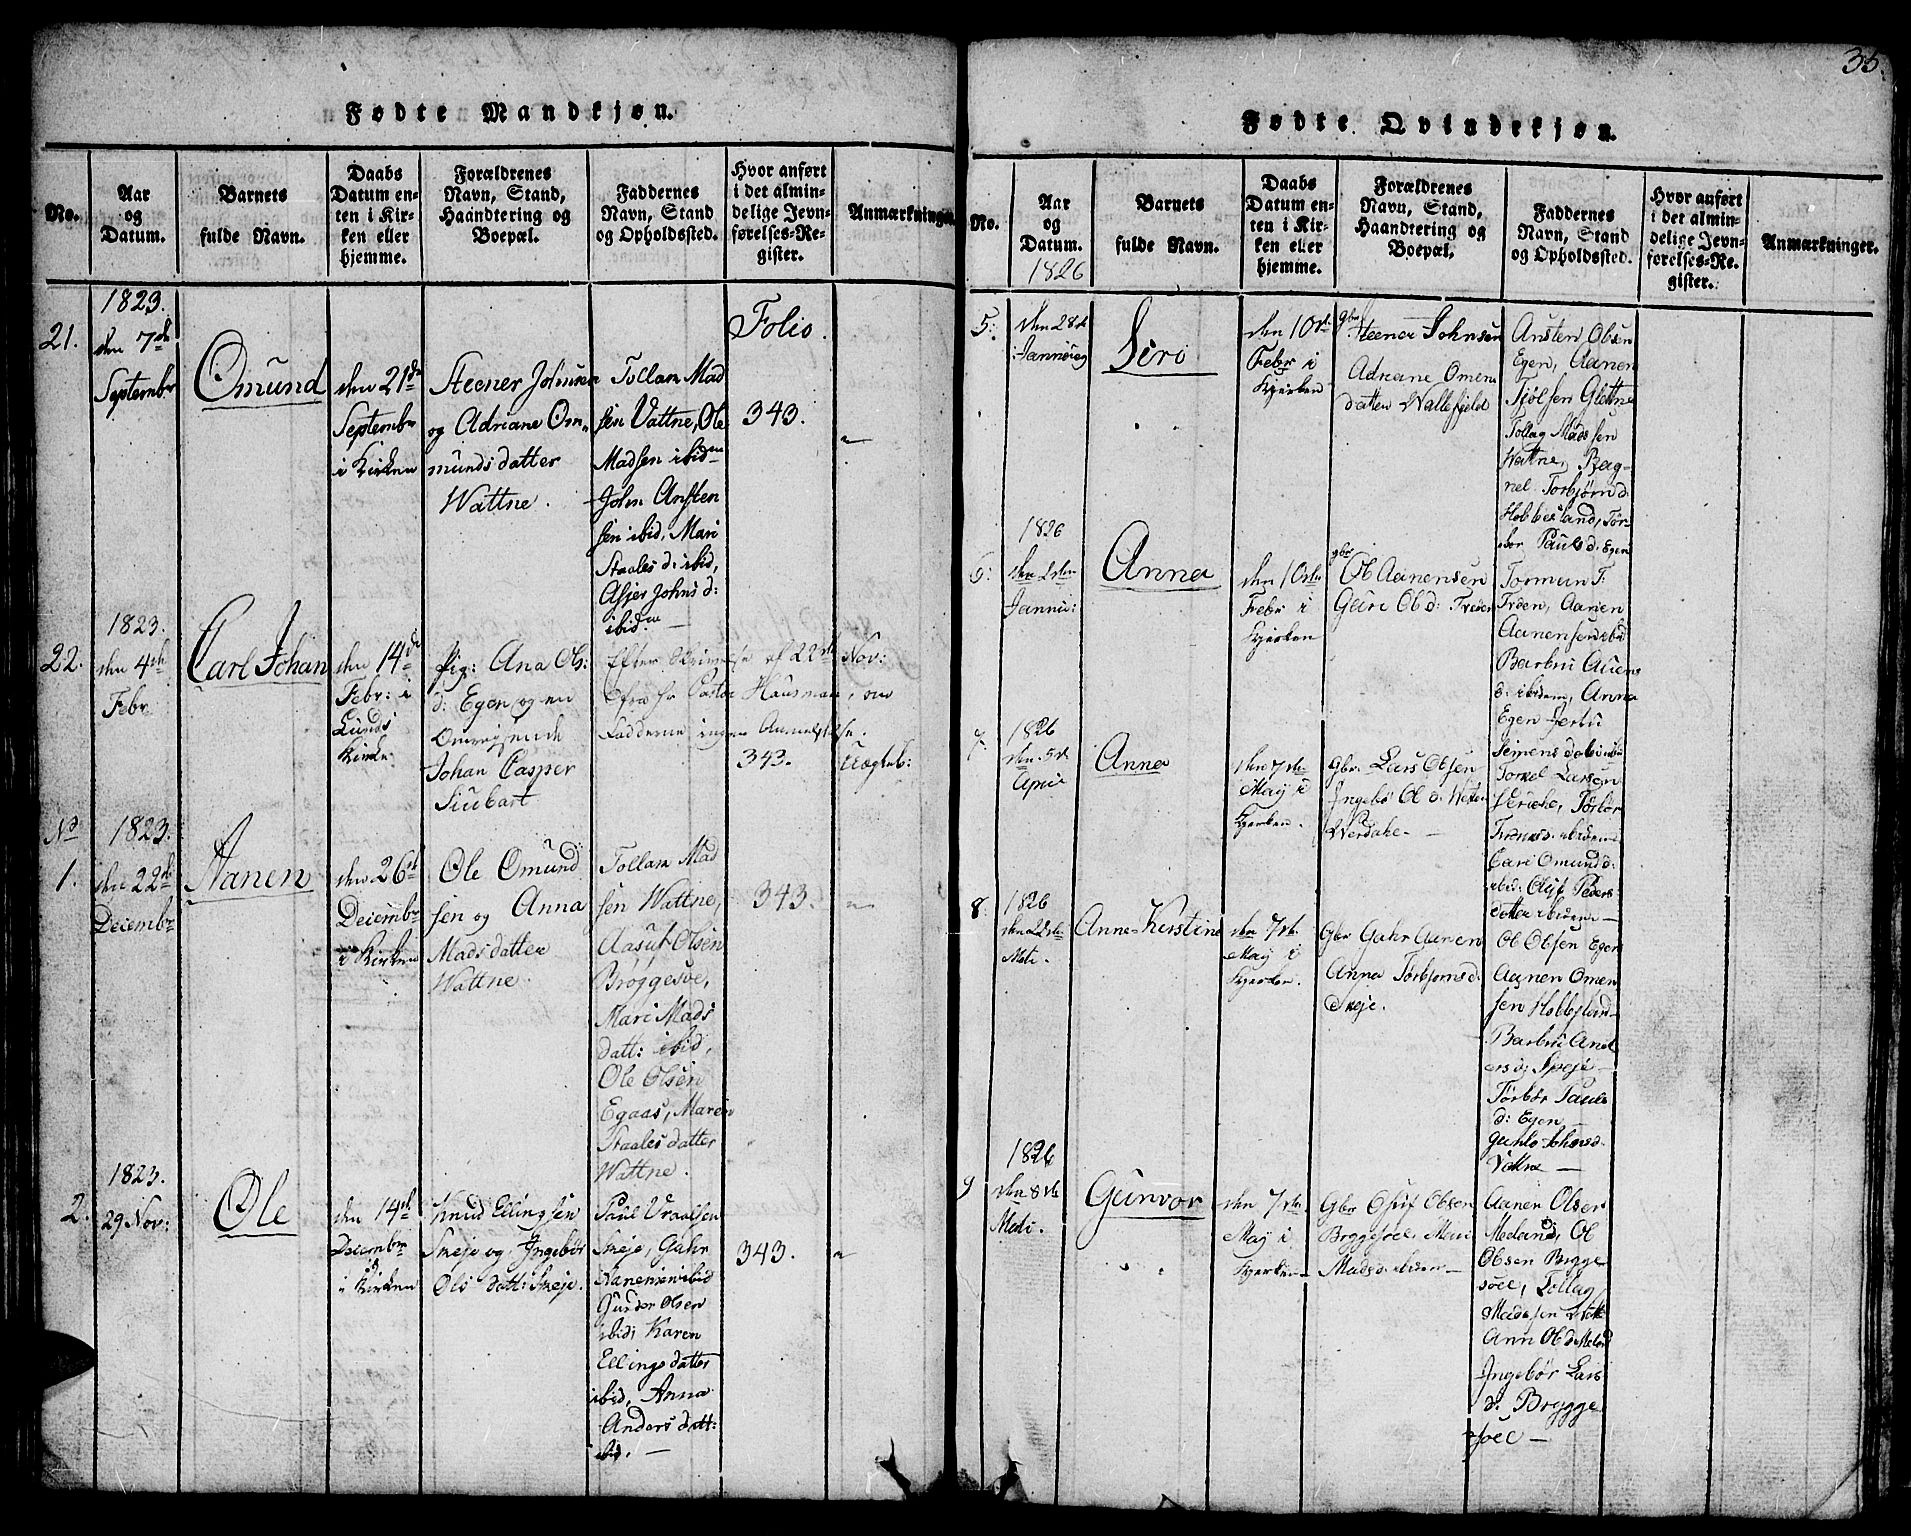 Fødte Mandkjøn.
No.
Aar
og
Datum.
Barnets
fulde Navn.
Daabs
Datum en-
ten i Kir-
ken eller
hjemme.
Forældrenes
Navn, Stand,
Haandtering og
Boepæl.
Faddernes
Navn, Stand
og Opholdssted.
Hvor anført
i det almin-
delige Jevn-
førelses-Re-
gister.
Anmærkninger.
21.
1823.
den 7de
Septembr
Omund
den 21de
Septembr
i Kirken
Steener Johnsen
og Adriane Om„
munds datter
Wattne.
Tollam Mad
sen Vattne, Ole
Madsen ibidm
John Ansten
sen ibid, Mari
Staales d: ibid,
Asjer Johns d:
ibidm —
Folio.
343.
22.
1823.
den 4de
Febr
Carl Johan
den 14de
Febr: i
Lunds
Kirke.
pig: Ana Ols:
d: Egen og en
Omrejsende
Johan Casper
Siubart
Efter Skrivelse af 22de Nov:
fra Hr Pastor Hausman, om
Fadderne ingen Anmeldelse.
343.
Uægteb:
No
1.
1823.
den 22de
Decembr
Aanen
den 26de
Decembr
i Kirken
Ole Omund
sen og Anna
Mads datter
Wattne.
Tollam Mad
sen Wattne,
Aasuf Olsen
Bröggesoe,
Mari Mads
datt: ibid,
Ole Olsen
Egaas, Maren
Staales datter
Wattne.
343.
2.
1823.
29 Nov:
Ole
den 14de
Decembr
i Kirken
Knud Ellingsen
Skeje og Ingebør
Ols datt: Skeje.
Paul Vraalsen
Skeje, Gahr
Aanensen ibid
Gunder Olsen
ibid, Karen
Ellings datter
ibid, Anna
Anders datt:
ibid. —
343.
35.
Fødte Qvindekjøn.
No.
Aar
og
Datum.
1826
Barnets
fulde Navn.
Daabs
Datum en-
ten i Kir-
ken eller
hjemme.
Forældrenes
Navn, Stand,
Haandtering og
Boepæl.
Faddernes
Navn, Stand
og Opholdssted.
Hvor anført
i det almin-
delige Jevn-
førelses-Re-
gister.
Anmærkninger.
5:
den 28de
Januarj
Siro
den 10de
Febr i
Kjerken
gbr Steener Johnsen
Adriane Omen
datter Wallefjeld
Ansten Olsen
Egen, Aanen
Tjölsen Glettne
Tollag Madssen
Wattne, Rag-
nel Torbjørn d.
Hobbesland, Tør-
bor Pauls d: Egen
6:
1826
den 2den
Januu:
Anna
den 10de
Febr i
Kjerken
gbr
Ol Aanensen
Guri Ol d: Treden
Tormun T:
Trden, Aanen
Aanensen ibd
Barbru Auens
d: ibidem, Anna
Egen
7.
1826
den 5de
April
Anna
den 7de
May i
Kjerken.
Gbr. Lars Olsen
Ingebö Ol d:
Werdahe —
Torkel Larsen
Cari Omunds d:
ibid: Olif Peders
datter ibidem —
8.
1826
den 22de
Meti.
Anne-Kerstine
den 7de
May i
Kjerken.
Gbr Gahr Aanen
Anna Torbjorns d.
Skeje.
Ol Olsen Egen
Aanen Omen
sen Hobbesland
Barbru And
ers d: Skeje —
Tørbör Pauls
d: Egen —
Gunlo Johnsd.
Vattne —
9
1826
den 8de
Meti.
Gunvor
den 7de
May i
Kjerken —
Gbr Osuf Olsen
Bryggesoel, Mari
Mads d: ibidem —
Aanen Olsen
Meland, Ol
Olsen Brygge
soel, Tollag
Madssen Vatt
Ann Ol d: Meland
Ingebør Lars
d. Brygge
soel —